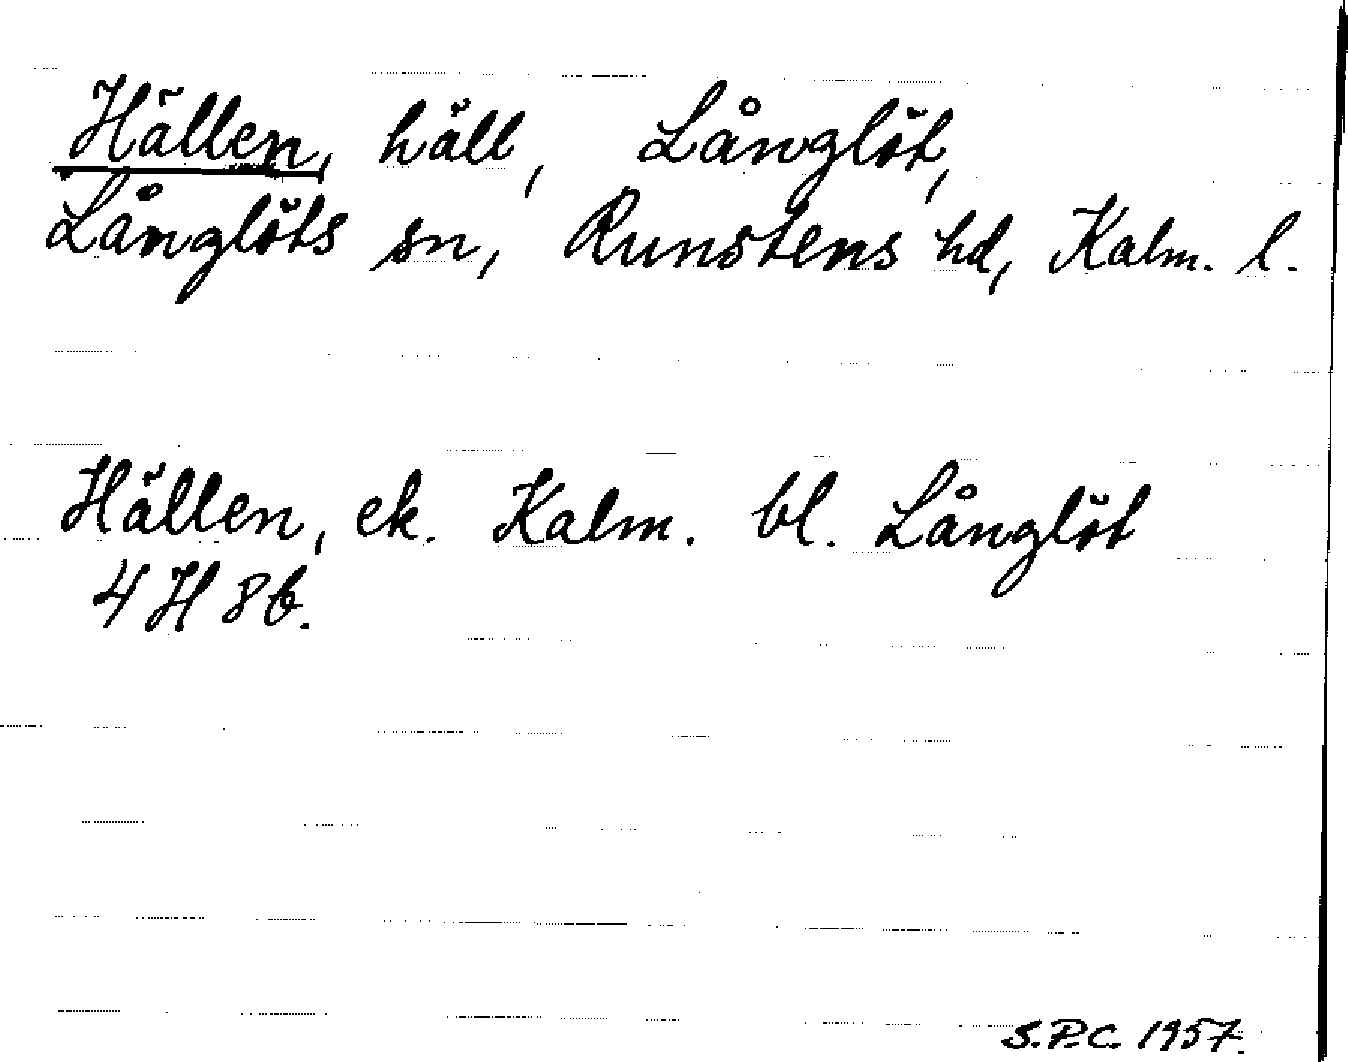 Hällen, häll, Långlöt,
Långlöts sn, Runstens hd, Kalm. l.
Hällen, ek. Kalm. bl. Långlöt
4 H 8b.
S.P.C. 1957.